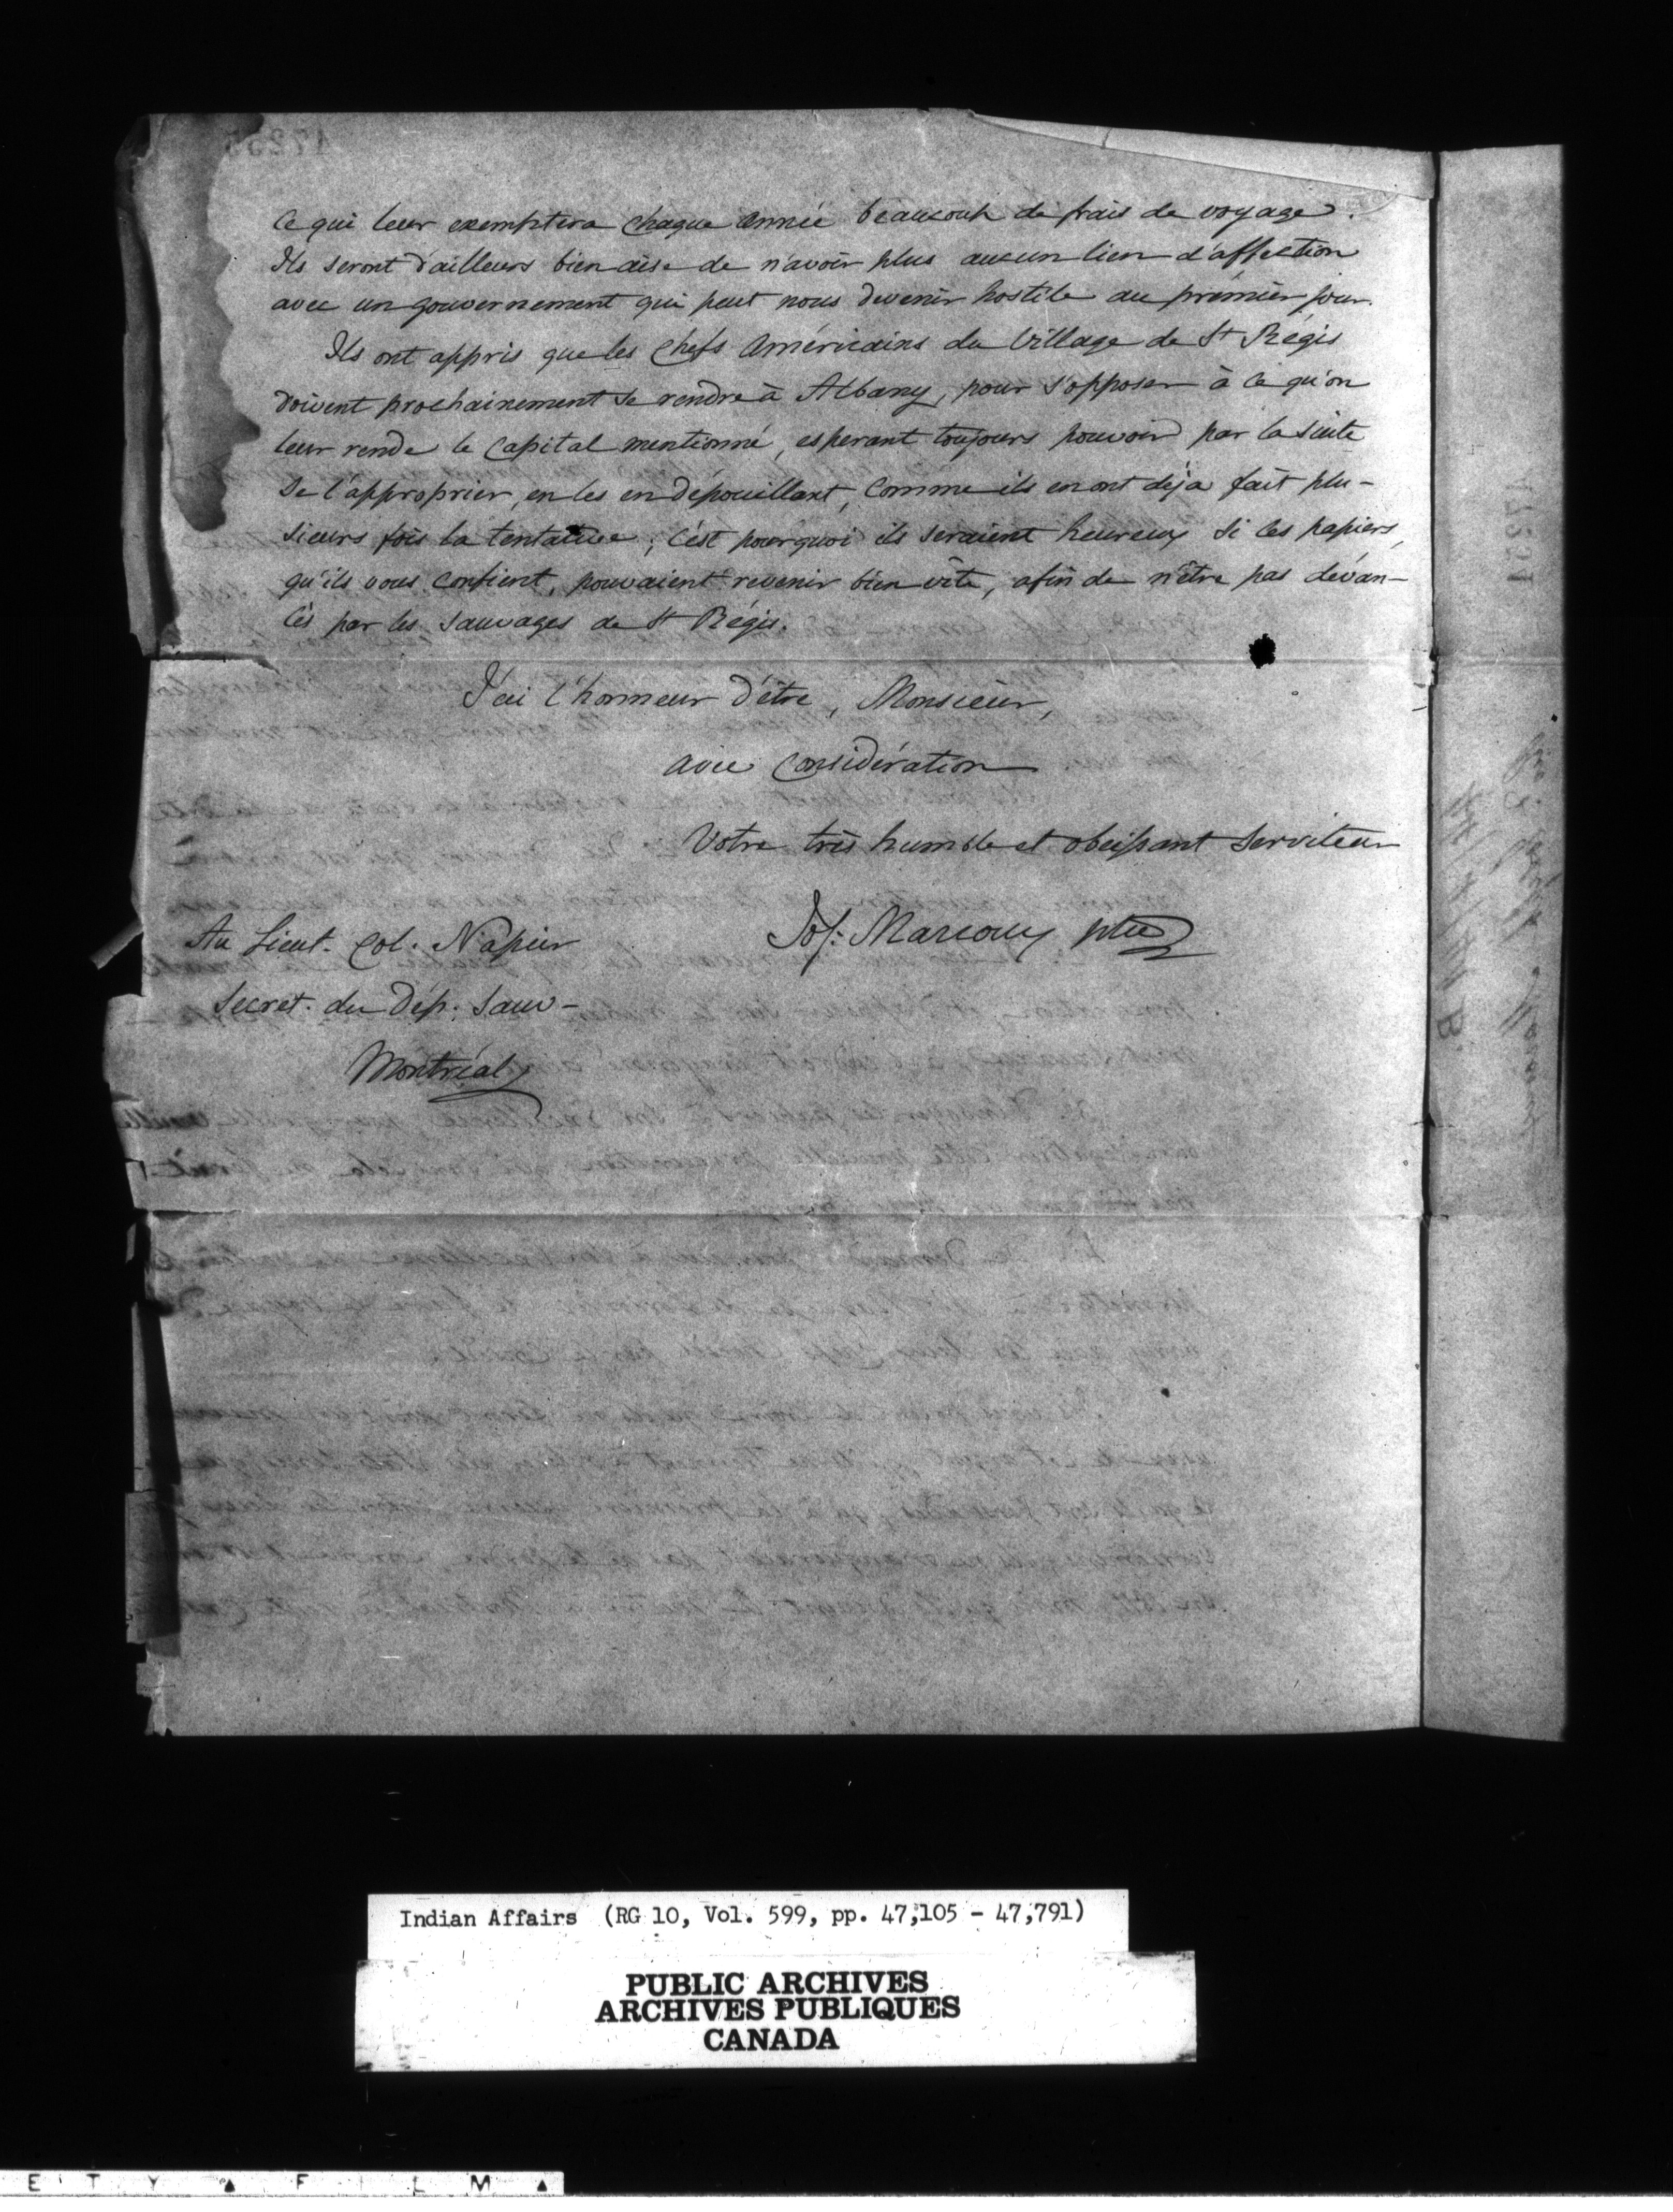 Ce qui leur exemptera chaque année beaucoup de frais de voyage.
Ils seront d'ailleurs bien aise de n'avoir plus aucun lien d'affection
avec un gouvernement qui peut nous devenir hostile au prémier jour.
Ils ont appris que les Chefs Américains du Village de St Régis
doivent prochainement se rendre à Albany, pour s'opposer à ce qu'on
leur rende le Capital mentionné, esperant toujours pouvoir par la suite
se l'approprier, en les en dépouillant, Comme ils en ont déja fait plu-
sieurs fois la tentative ; C'est pourquoi ils seraient heureux si les papiers,
qu'ils vous confient, pouvaient revenir bien vite, afin de n'être pas dévan-
cés par les Sauvages de St Régis.
J'ai l'honneur d'être, Monsieur,
avec Considération
Votre très humble et obeissant Serviteur
Jos: Marcoux ptre
Au Lieut. Col. Napier
Secret. du Dép. Sauv-
Montréal
Indian Affairs (RG 10, Vol. 599, pp. 47,105 - 47,791)
PUBLIC ARCHIVES
ARCHIVES PUBLIQUES
CANADA
E T Y ▲ F I L M ▲